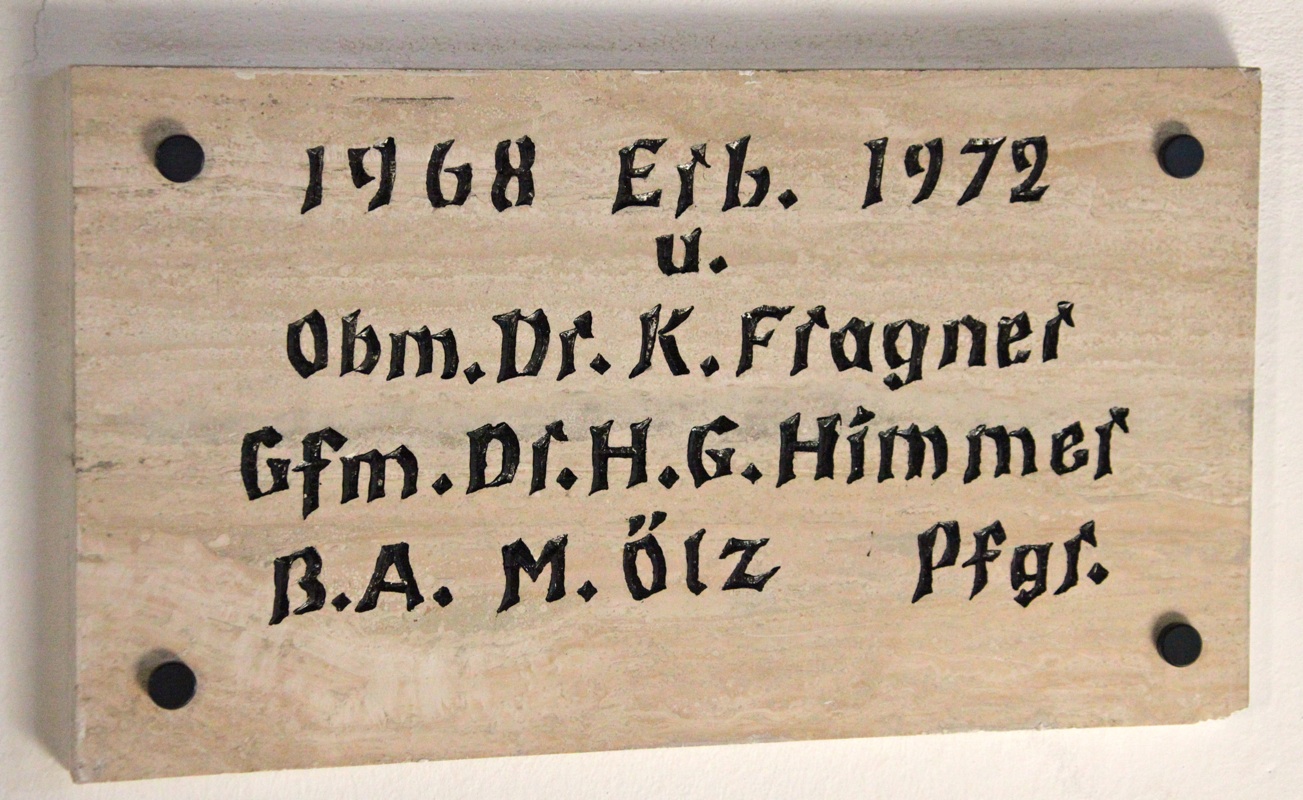 1968 Erb. 1972
u.
Obm. Dr. K. Fragner
Gfm. Dr. H. G. Himmer
B. A. M. Ölz Pfgr.